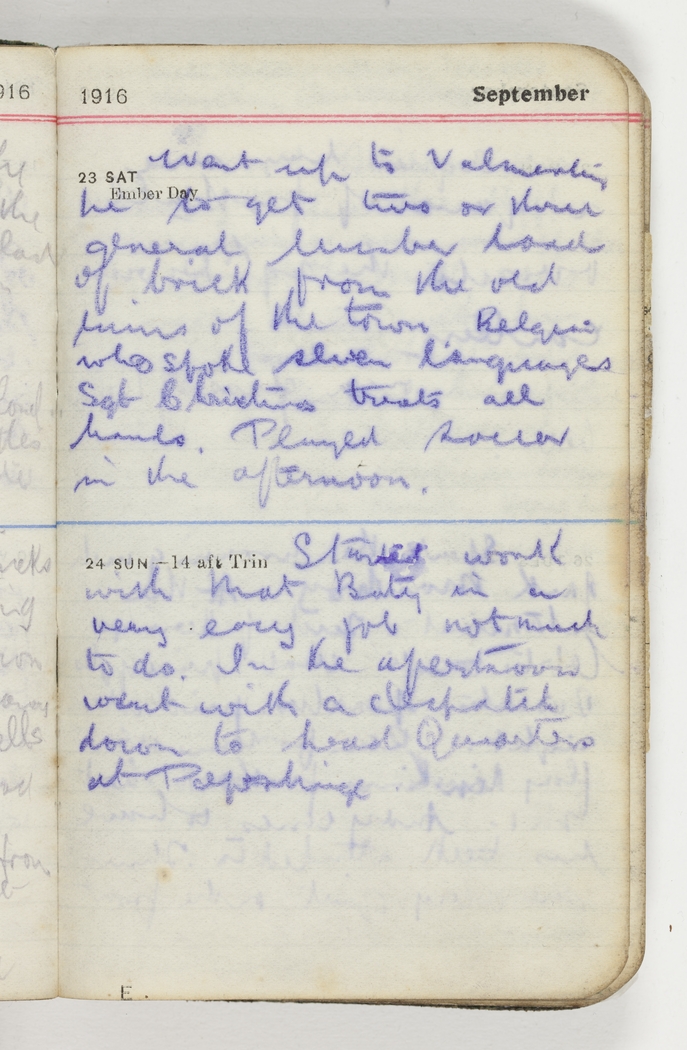 916
1916 September
23 SAT
Ember Day
Went up to
he to get two or three
general lumber load
of brick from the old
ruins of the town Belgian
who spoke seven languages
Sgt treats all
hands. Played soccer
in the afternoon.
24 SUN – 14 aft Trin
Started work
with that Baty in a
very easy job not much
to do. In the afternoon
went with a despatch
down to head Quarters
at Poperhinge
E